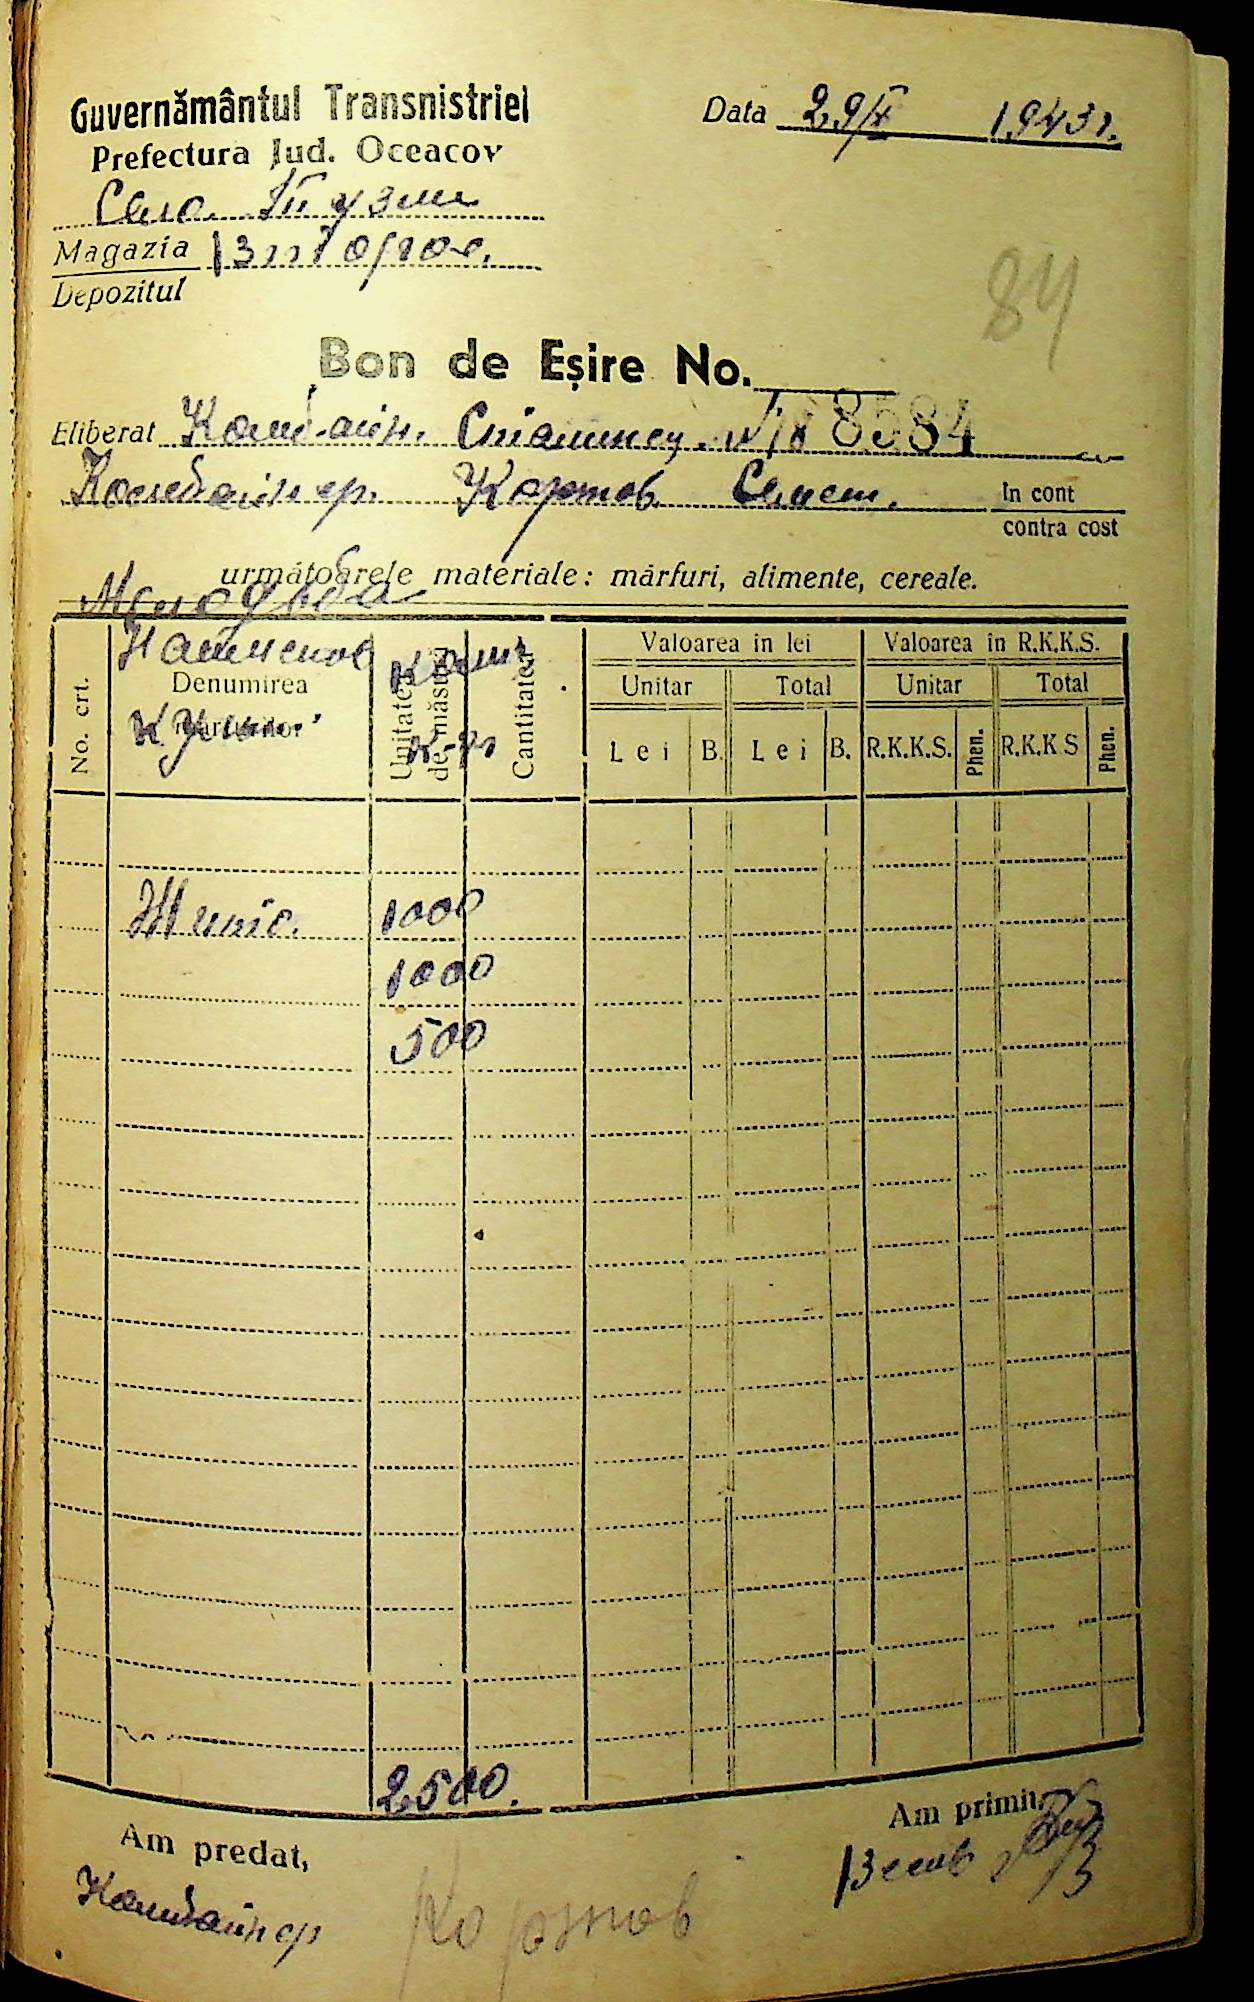 Guvernământul Transnistriei
Data 29/X 1943 г.
Prefectura Jud. Oceacov
Село Тузли
Magazia Второе.
Depozitul
84
Bon de Eşire No.
8584
Eliberat Комбайн. Сталинец. №
Комбайнер. Кортов Семен.
In cont
contra cost
următoarele materiale: mărfuri, alimente, cereale.
Молодьба
No. crt.
Наименов
Denumirea
культ.
Unitatea de măsură
к-во
Cantitatea
Valoarea in lei
Valoarea în R.K.K.S.
Unitar Total Unitar Total
Lei B. Lei B. R.K.K.S. Phen. R.K.K.S Phen.
Жито. 1000
1000
500
2500.
Am predat,
Am primit,
Комбайнер
Кортов
Весов